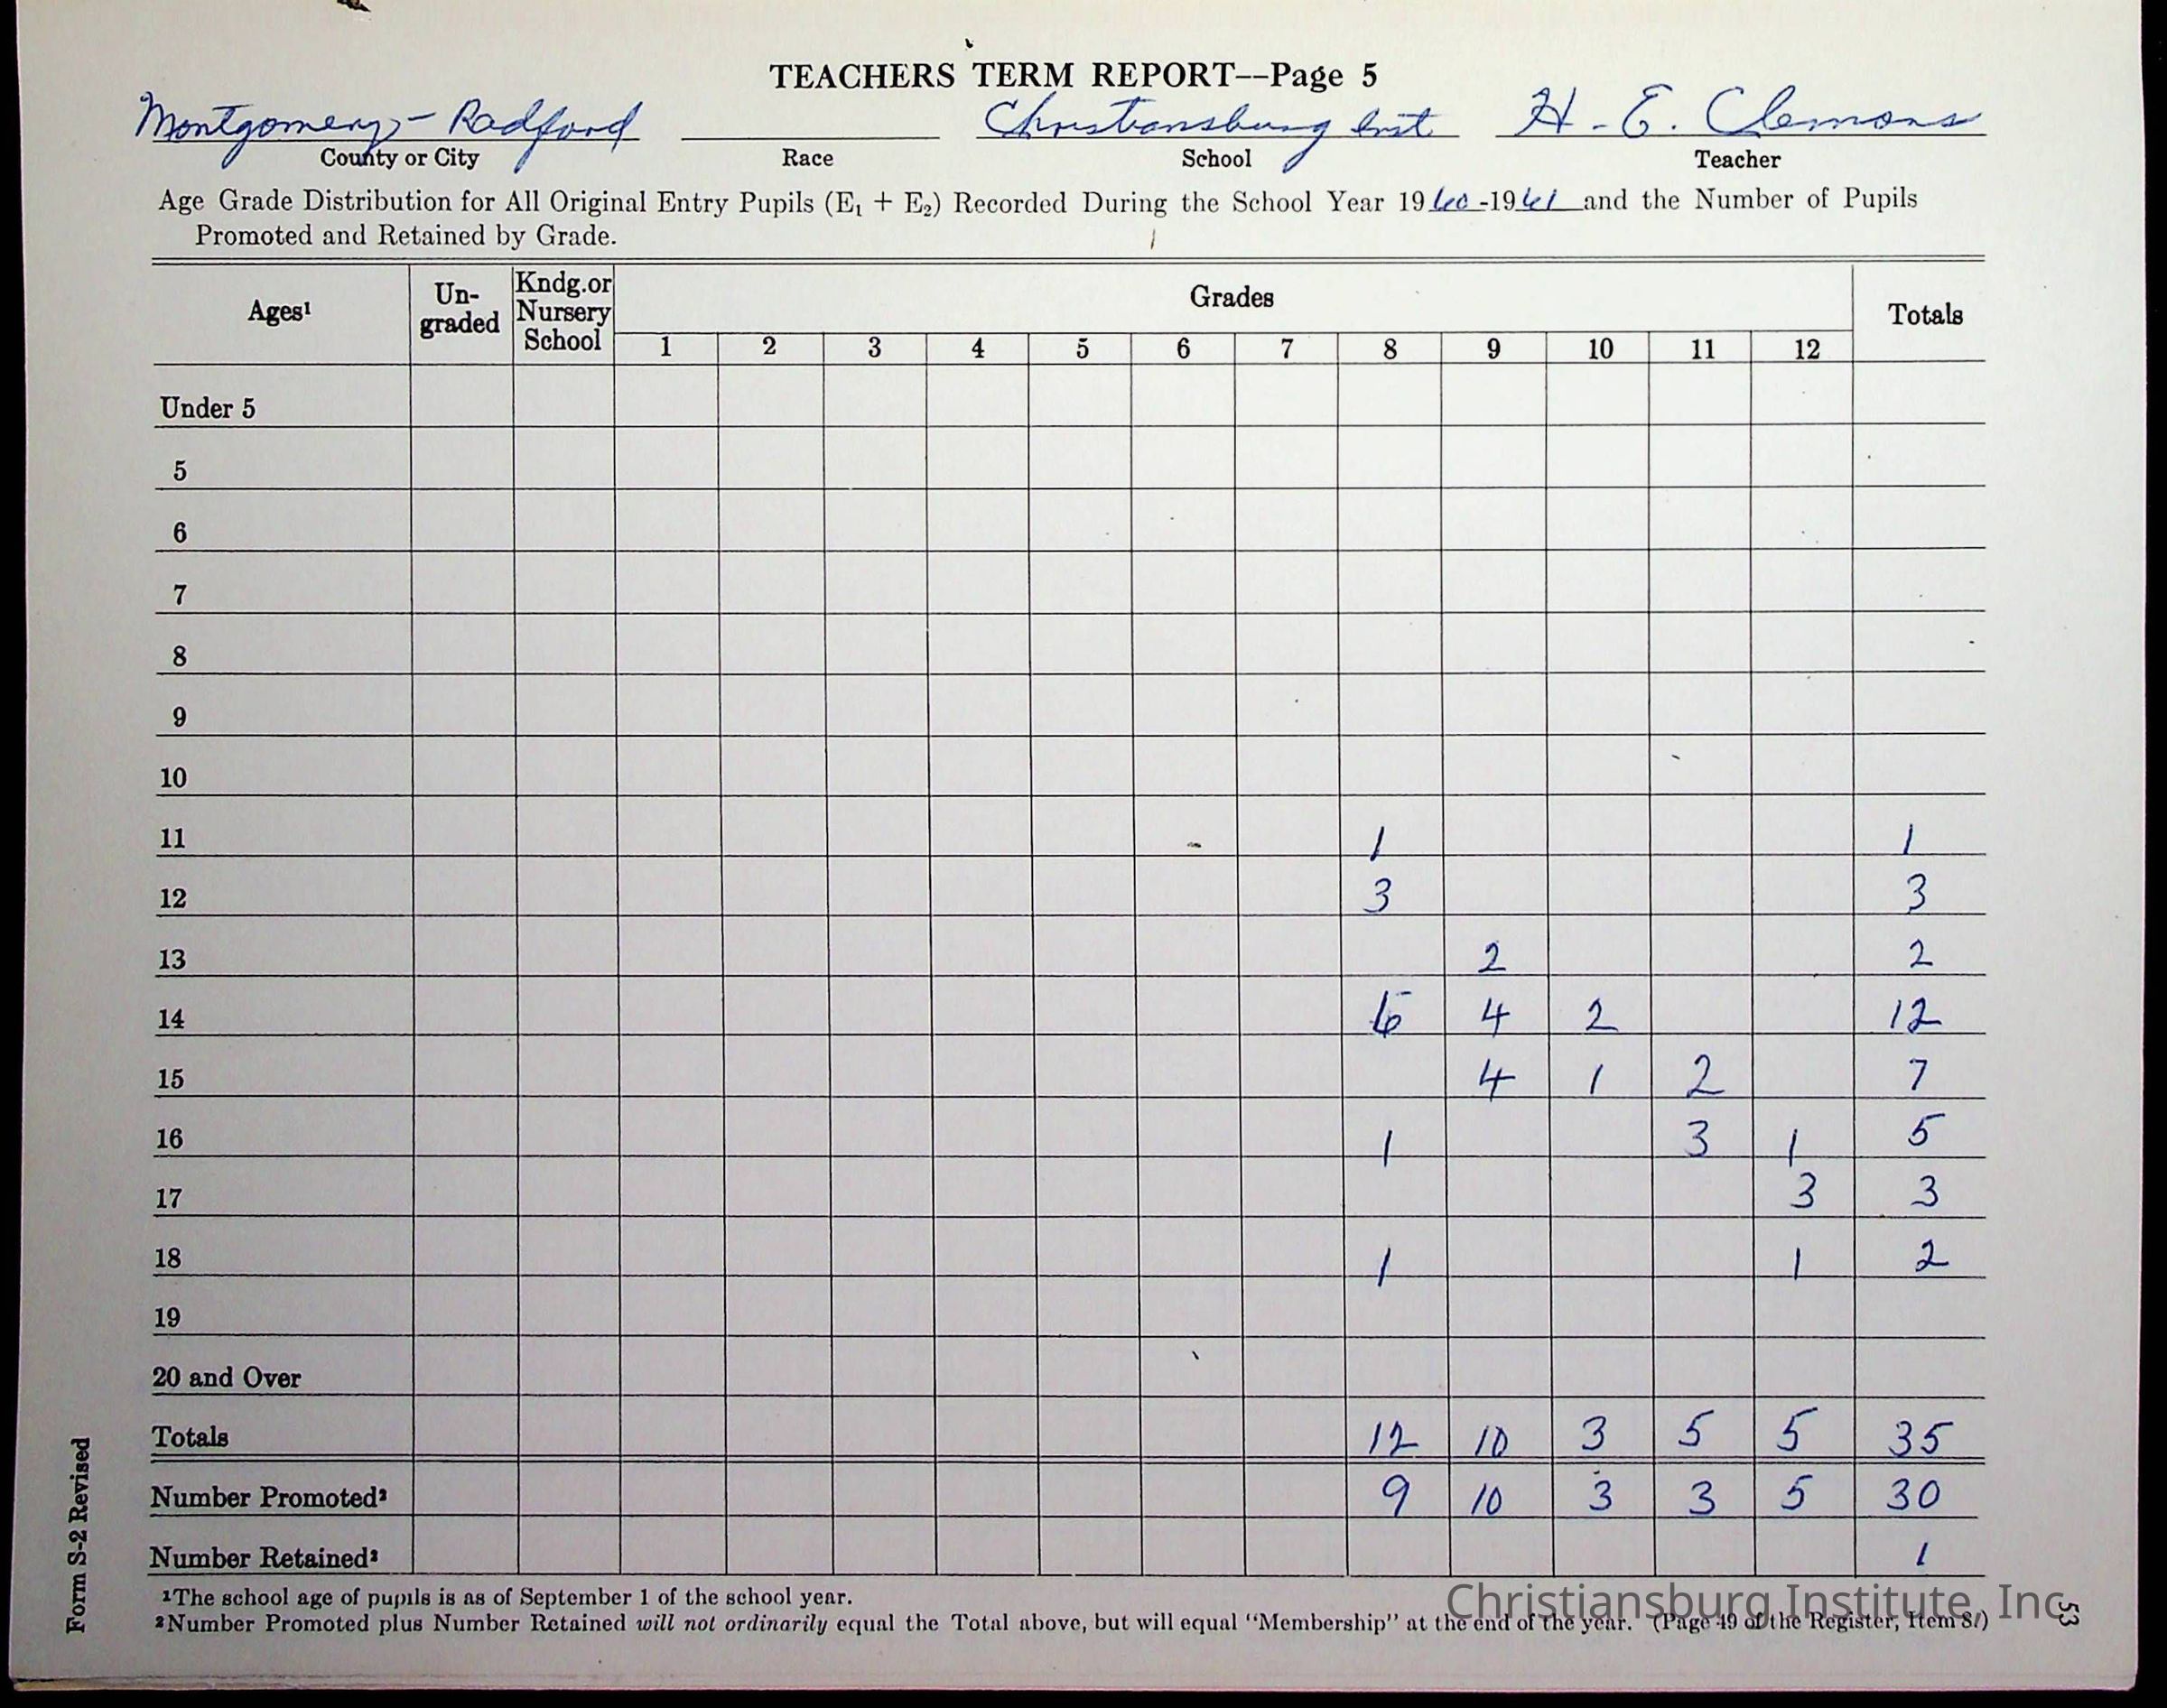 TEACHERS TERM REPORT--Page 5
Montgomery - Radford Christiansburg Inst H. E. Clemons
County or City Race School Teacher
Age Grade Distribution for All Original Entry Pupils (E₁ + E₂) Recorded During the School Year 1960-1961 and the Number of Pupils
Promoted and Retained by Grade.
Ages¹ Un-graded Kndg.or Nursery School Grades Totals
1 2 3 4 5 6 7 8 9 10 11 12
Under 5
5
6
7
8
9
10
11 1 1
12 3 3
13 2 2
14 6 4 2 12
15 4 1 2 7
16 1 3 1 5
17 3 3
18 1 1 2
19
20 and Over
Totals 12 10 3 5 5 35
Number Promoted² 9 10 3 3 5 30
Number Retained² 1
¹The school age of pupils is as of September 1 of the school year.
²Number Promoted plus Number Retained will not ordinarily equal the Total above, but will equal "Membership" at the end of the year. (Page 49 of the Register, Item 8.)
Form S-2 Revised
53
Christiansburg Institute, Inc.